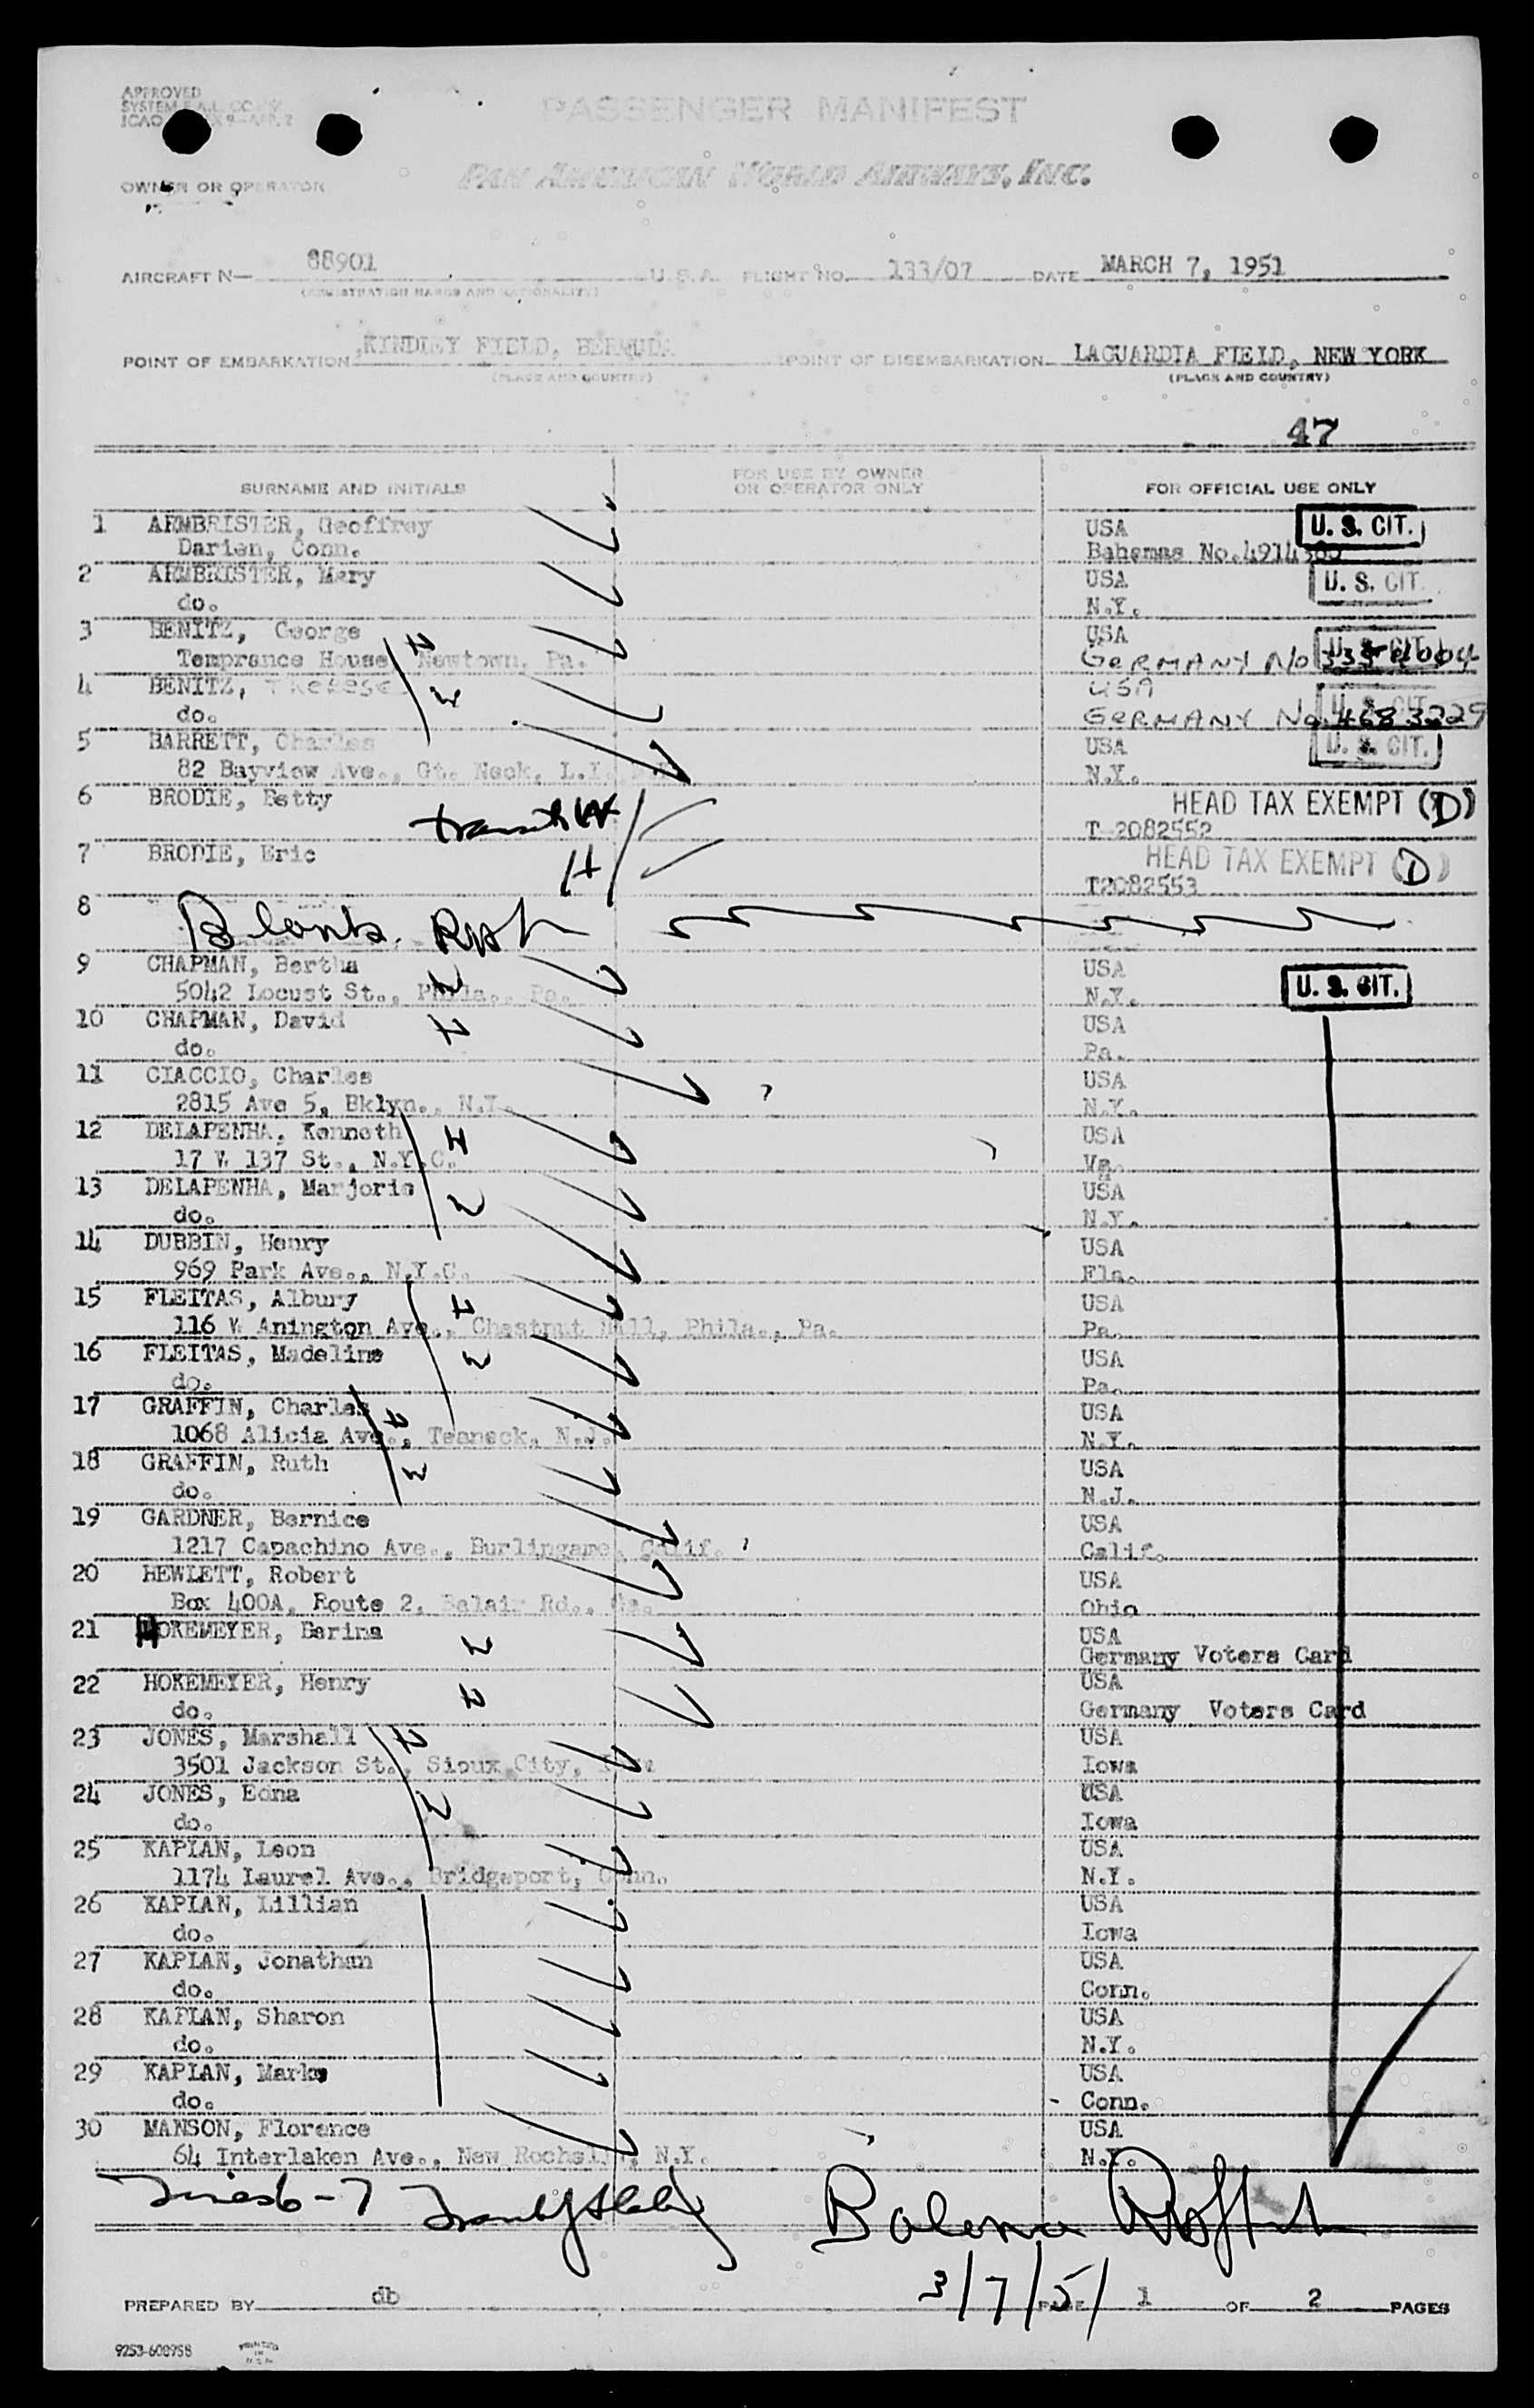 APPROVED
SYSTEM
ICAO
PASSENGER MANIFEST
OWNER OR OPERATOR
PAN AMERICAN WORLD AIRWAYS, INC.
AIRCRAFT N— 88901 U.S.A. FLIGHT NO. 133/07 DATE MARCH 7, 1951
(REGISTRATION MARKS AND NATIONALITY)
POINT OF EMBARKATION KINDLEY FIELD, BERMUDA POINT OF DISEMBARKATION LAGUARDIA FIELD, NEW YORK
(PLACE AND COUNTRY) (PLACE AND COUNTRY)
47
SURNAME AND INITIALS FOR USE BY OWNER OR OPERATOR ONLY FOR OFFICIAL USE ONLY
1 ARMBRISTER, Geoffrey USA U. S. CIT.
Darien, Conn. Bahamas No.
2 ARMBRISTER, Mary USA U. S. CIT.
do. N.Y.
3 BENITZ, George USA U. S. CIT.
Temprance House Newtown, Pa. GERMANY No
4 BENITZ, Therese USA U. S. CIT.
do. GERMANY No. 4683229
5 BARRETT, Charles USA U. S. CIT.
82 Bayview Ave., Gt. Neck, L.I. N.Y.
6 BRODIE, Betty HEAD TAX EXEMPT (D)
transit W T-2082552
7 BRODIE, Eric H HEAD TAX EXEMPT (D)
T2082553
8 Blank
9 CHAPMAN, Bertha USA U. S. CIT.
5042 Locust St., Phila., Pa. W N.Y.
10 CHAPMAN, David H USA
do. Pa.
11 CIACCIO, Charles USA
2815 Ave S, Bklyn., N.Y. N.Y.
12 DELAPENHA, Kenneth H USA
17 W 137 St., N.Y.C. Va.
13 DELAPENHA, Marjorie W USA
do. N.Y.
14 DUBBIN, Henry USA
969 Park Ave., N.Y.C. Fla.
15 FLEITAS, Albury H USA
116 W Anington Ave., Chestnut Hill, Phila., Pa. Pa.
16 FLEITAS, Madeline W USA
do. Pa.
17 GRAFFIN, Charles H USA
1068 Alicia Ave., Teaneck, N.J. N.Y.
18 GRAFFIN, Ruth W USA
do. N.J.
19 GARDNER, Bernice USA
1217 Capachino Ave., Burlingame, Calif. Calif.
20 HEWLETT, Robert USA
Box 400A, Route 2, Belair Rd., Ohio
21 HOKEMEYER, Berina W USA
Germany Voters Card
22 HOKEMEYER, Henry H USA
do. Germany Voters Card
23 JONES, Marshall H USA
3501 Jackson St., Sioux City, Iowa Iowa
24 JONES, Edna W USA
do. Iowa
25 KAPLAN, Leon USA
1174 Laurel Ave., Bridgeport, Conn. N.Y.
26 KAPLAN, Lillian USA
do. Iowa
27 KAPLAN, Jonathan USA
do. Conn.
28 KAPLAN, Sharon USA
do. N.Y.
29 KAPLAN, Marks USA
do. Conn.
30 MANSON, Florence USA
64 Interlaken Ave., New Rochelle, N.Y. N.Y.
3/7/51
PREPARED BY db PAGE 1 OF 2 PAGES
9253-600958 PRINTED IN U.S.A.